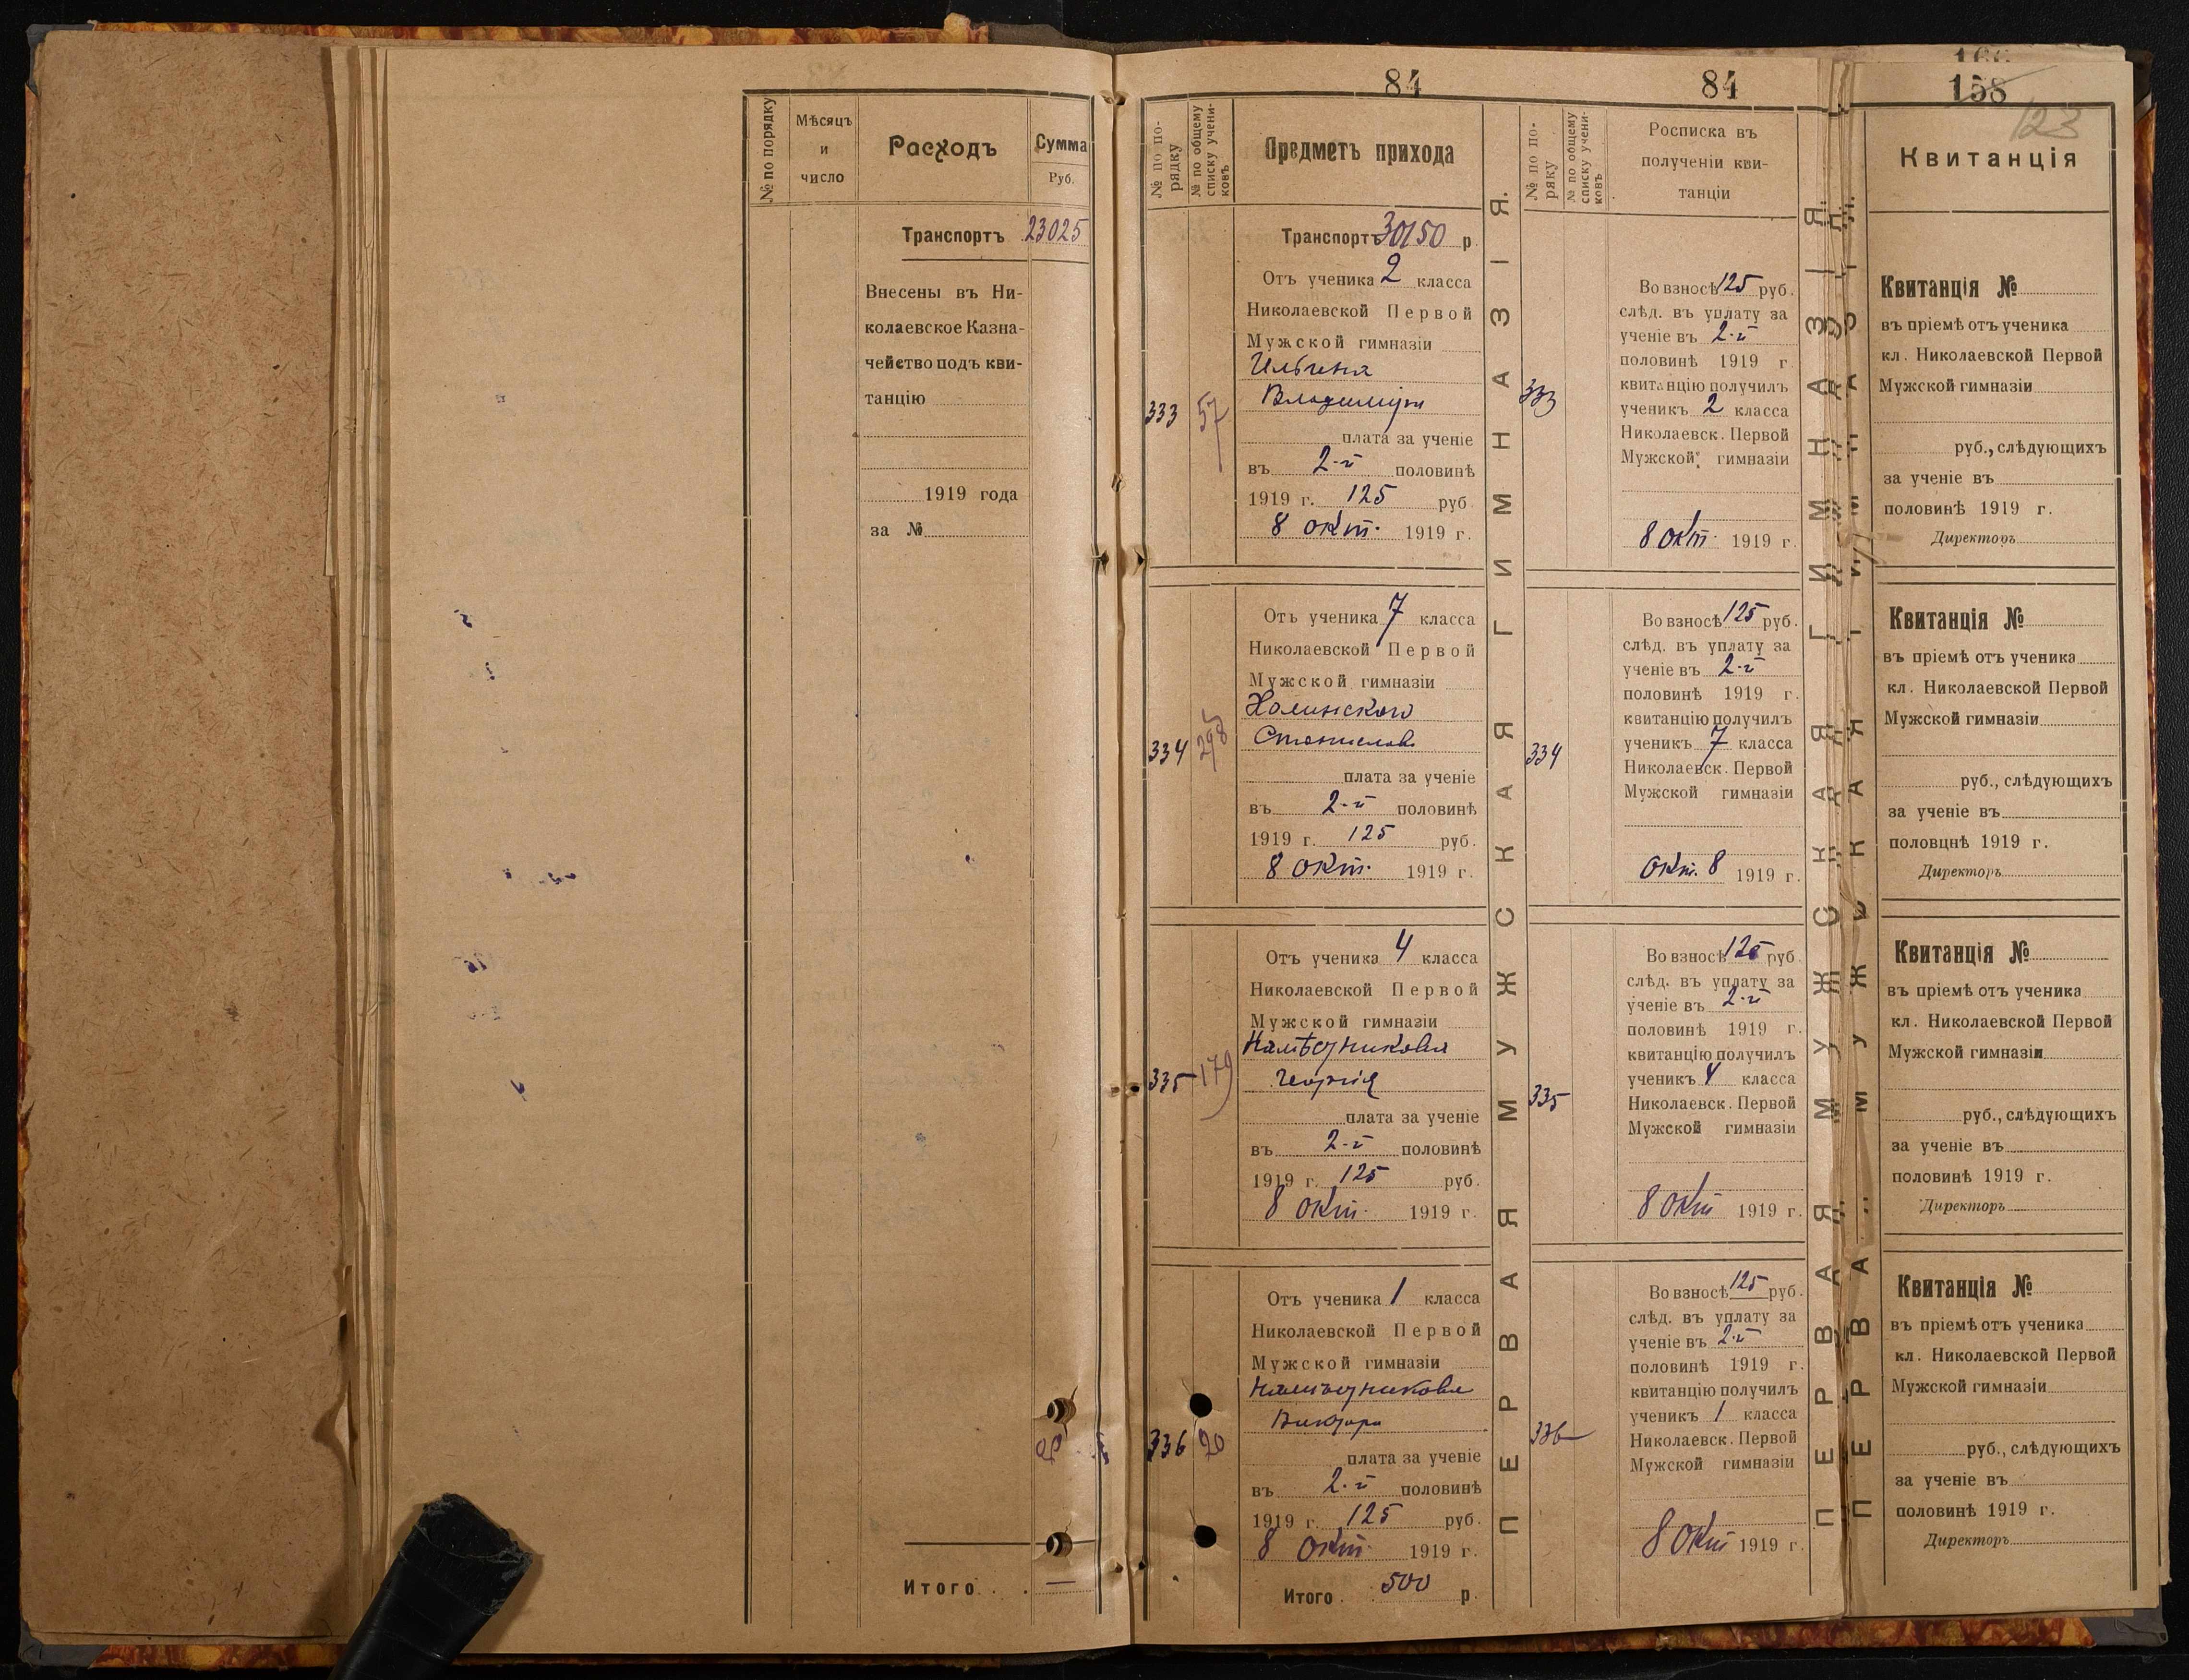 № по порядку
Мѣсяцъ
и
число
Расходъ
Сумма
Руб.
Транспортъ 23025
Внесены въ Ни-
колаевское Казна-
чейство подъ кви-
танцію
1919 года
за №
Итого . . . —
84
№ по по-
рядку
№ по общему
списку учени-
ковъ
Предметъ прихода
Транспортъ 30150 р
333
57
Отъ ученика 2 класса
Николаевской Первой
Мужской гимназіи
Ильина
Владимира
плата за ученіе
въ 2-й половинѣ
1919 г. 125 руб
8 окт. 1919 г.
334
298
Отъ ученика 7 класса
Николаевской Первой
Мужской гимназіи
Холинского
Станислава
плата за ученіе
въ 2-й половинѣ
1919 г. 125 руб.
8 окт. 1919 г.
335
179
Отъ ученика 4 класса
Николаевской Первой
Мужской гимназіи
Намѣстникова
Георгія
плата за ученіе
въ 2-й половинѣ
1919 г. 125 руб.
8 окт. 1919 г.
336
20
Отъ ученика 1 класса
Николаевской Первой
Мужской гимназіи
Намѣстникова
Виктора
плата за ученіе
въ 2-й половинѣ
1919 г. 125 руб.
8 окт. 1919 г.
Итого . 500 р.
ПЕРВАЯ МУЖСКАЯ ГИМНАЗІЯ.
84
№ по по-
ряку
№ по общему
списку учени-
ковъ
Росписка въ
полученіи кви-
танціи
333
Во взносѣ 125 руб.
слѣд. въ уплату за
ученіе въ 2-й
половинѣ 1919 г
квитанцію получилъ
ученикъ 2 класса
Николаевск. Первой
Мужской гимназіи
8 окт. 1919 г.
334
Во взносѣ 125 руб.
слѣд. въ уплату за
ученіе въ 2-й
половинѣ 1919 г.
квитанцію получилъ
ученикъ 7 класса
Николаевск. Первой
Мужской гимназіи
Окт. 8 1919 г.
335
Во взносѣ 125 руб
слѣд. въ уплату за
ученіе въ 2-й
половинѣ 1919 г.
квитанцію получилъ
ученикъ 4 класса
Николаевск. Первой
Мужской гимназіи
8 окт 1919 г.
336
Во взносѣ 125 руб.
слѣд. въ уплату за
ученіе въ 2-й
половинѣ 1919 г.
квитанцію получилъ
ученикъ 1 класса
Николаевск. Первой
Мужской гимназіи
8 окт 1919 г.
ПЕРВАЯ МУЖСКАЯ ГИМНАЗІЯ.
158
123
Квитанція
Квитанція №
въ пріемѣ отъ ученика
кл. Николаевской Первой
Мужской гимназіи
руб., слѣдующихъ
за ученіе въ
половинѣ 1919 г.
Директоръ
Квитанція №
въ пріемѣ отъ ученика
кл. Николаевской Первой
Мужской гимназіи
руб., слѣдующихъ
за ученіе въ
половцнѣ 1919 г.
Директоръ
Квитанція №
въ пріемѣ отъ ученика
кл. Николаевской Первой
Мужской гимназіи
руб., слѣдующихъ
за ученіе въ
половинѣ 1919 г.
Директоръ
Квитанція №
въ пріемѣ отъ ученика
кл. Николаевской Первой
Мужской гимназіи
руб., слѣдующихъ
за ученіе въ
половинѣ 1919 г.
Директоръ